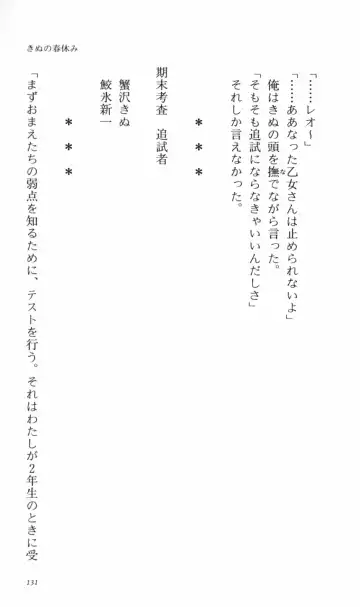 きぬの春休み
「……レオ～」
「……ああなった乙女さんは止められないよ」
俺はきぬの頭を撫でながら言った。
「そもそも追試にならなきゃいいんだしさ」
それしか言えなかった。
＊　＊　＊
期末考査　追試者
蟹沢きぬ
鮫氷新一
＊　＊　＊
「まずおまえたちの弱点を知るために、テストを行う。それはわたしが２年生のときに受
131